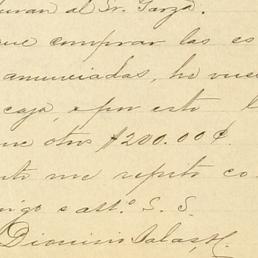 al Sr. Garza.
que comprar las es
anunciadas, ho vuel
caja, e por esto l
me otros $200.00¢
me repito co
migo e att.º S. S.
Dionisio Salas, H.